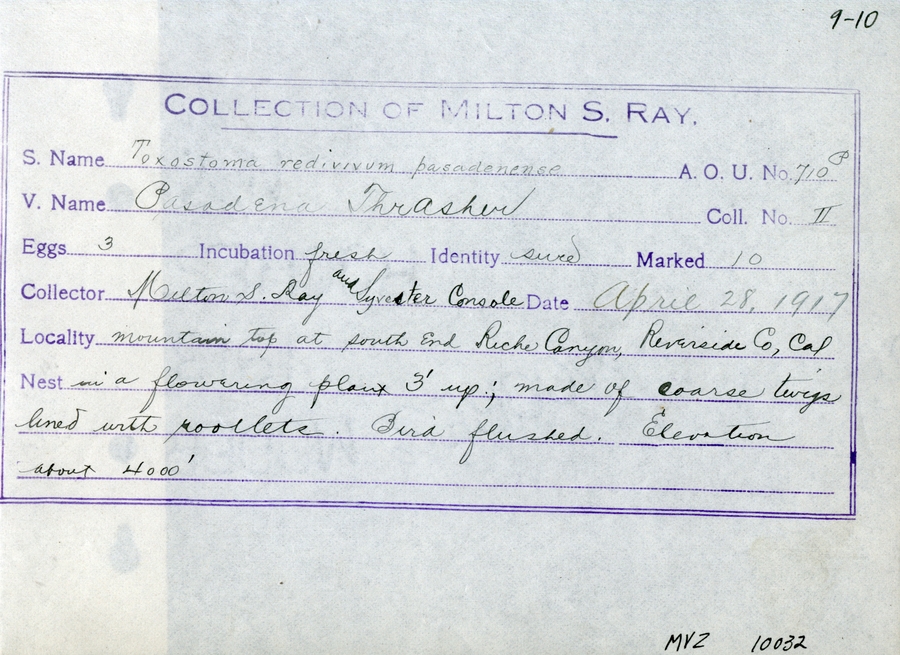 9-10
COLLECTION OF MILTON S. RAY.
S. Name Toxostoma redivivum pasadenense A. O. U. No. 710
V. Name Pasadena Thrasher Coll. No. II
Eggs 3 Incubation fresh Identity sure Marked 10
Collector Milton S. Ray and Sylvester Console Date April 28, 1917
Locality mountain top at south End Riche Canyon, Riverside Co, Cal
Nest in a flowering plant 3' up; made of coarse twigs
lined with rootlets. Bird flushed. Elevation
about 4000'
MVZ 10032